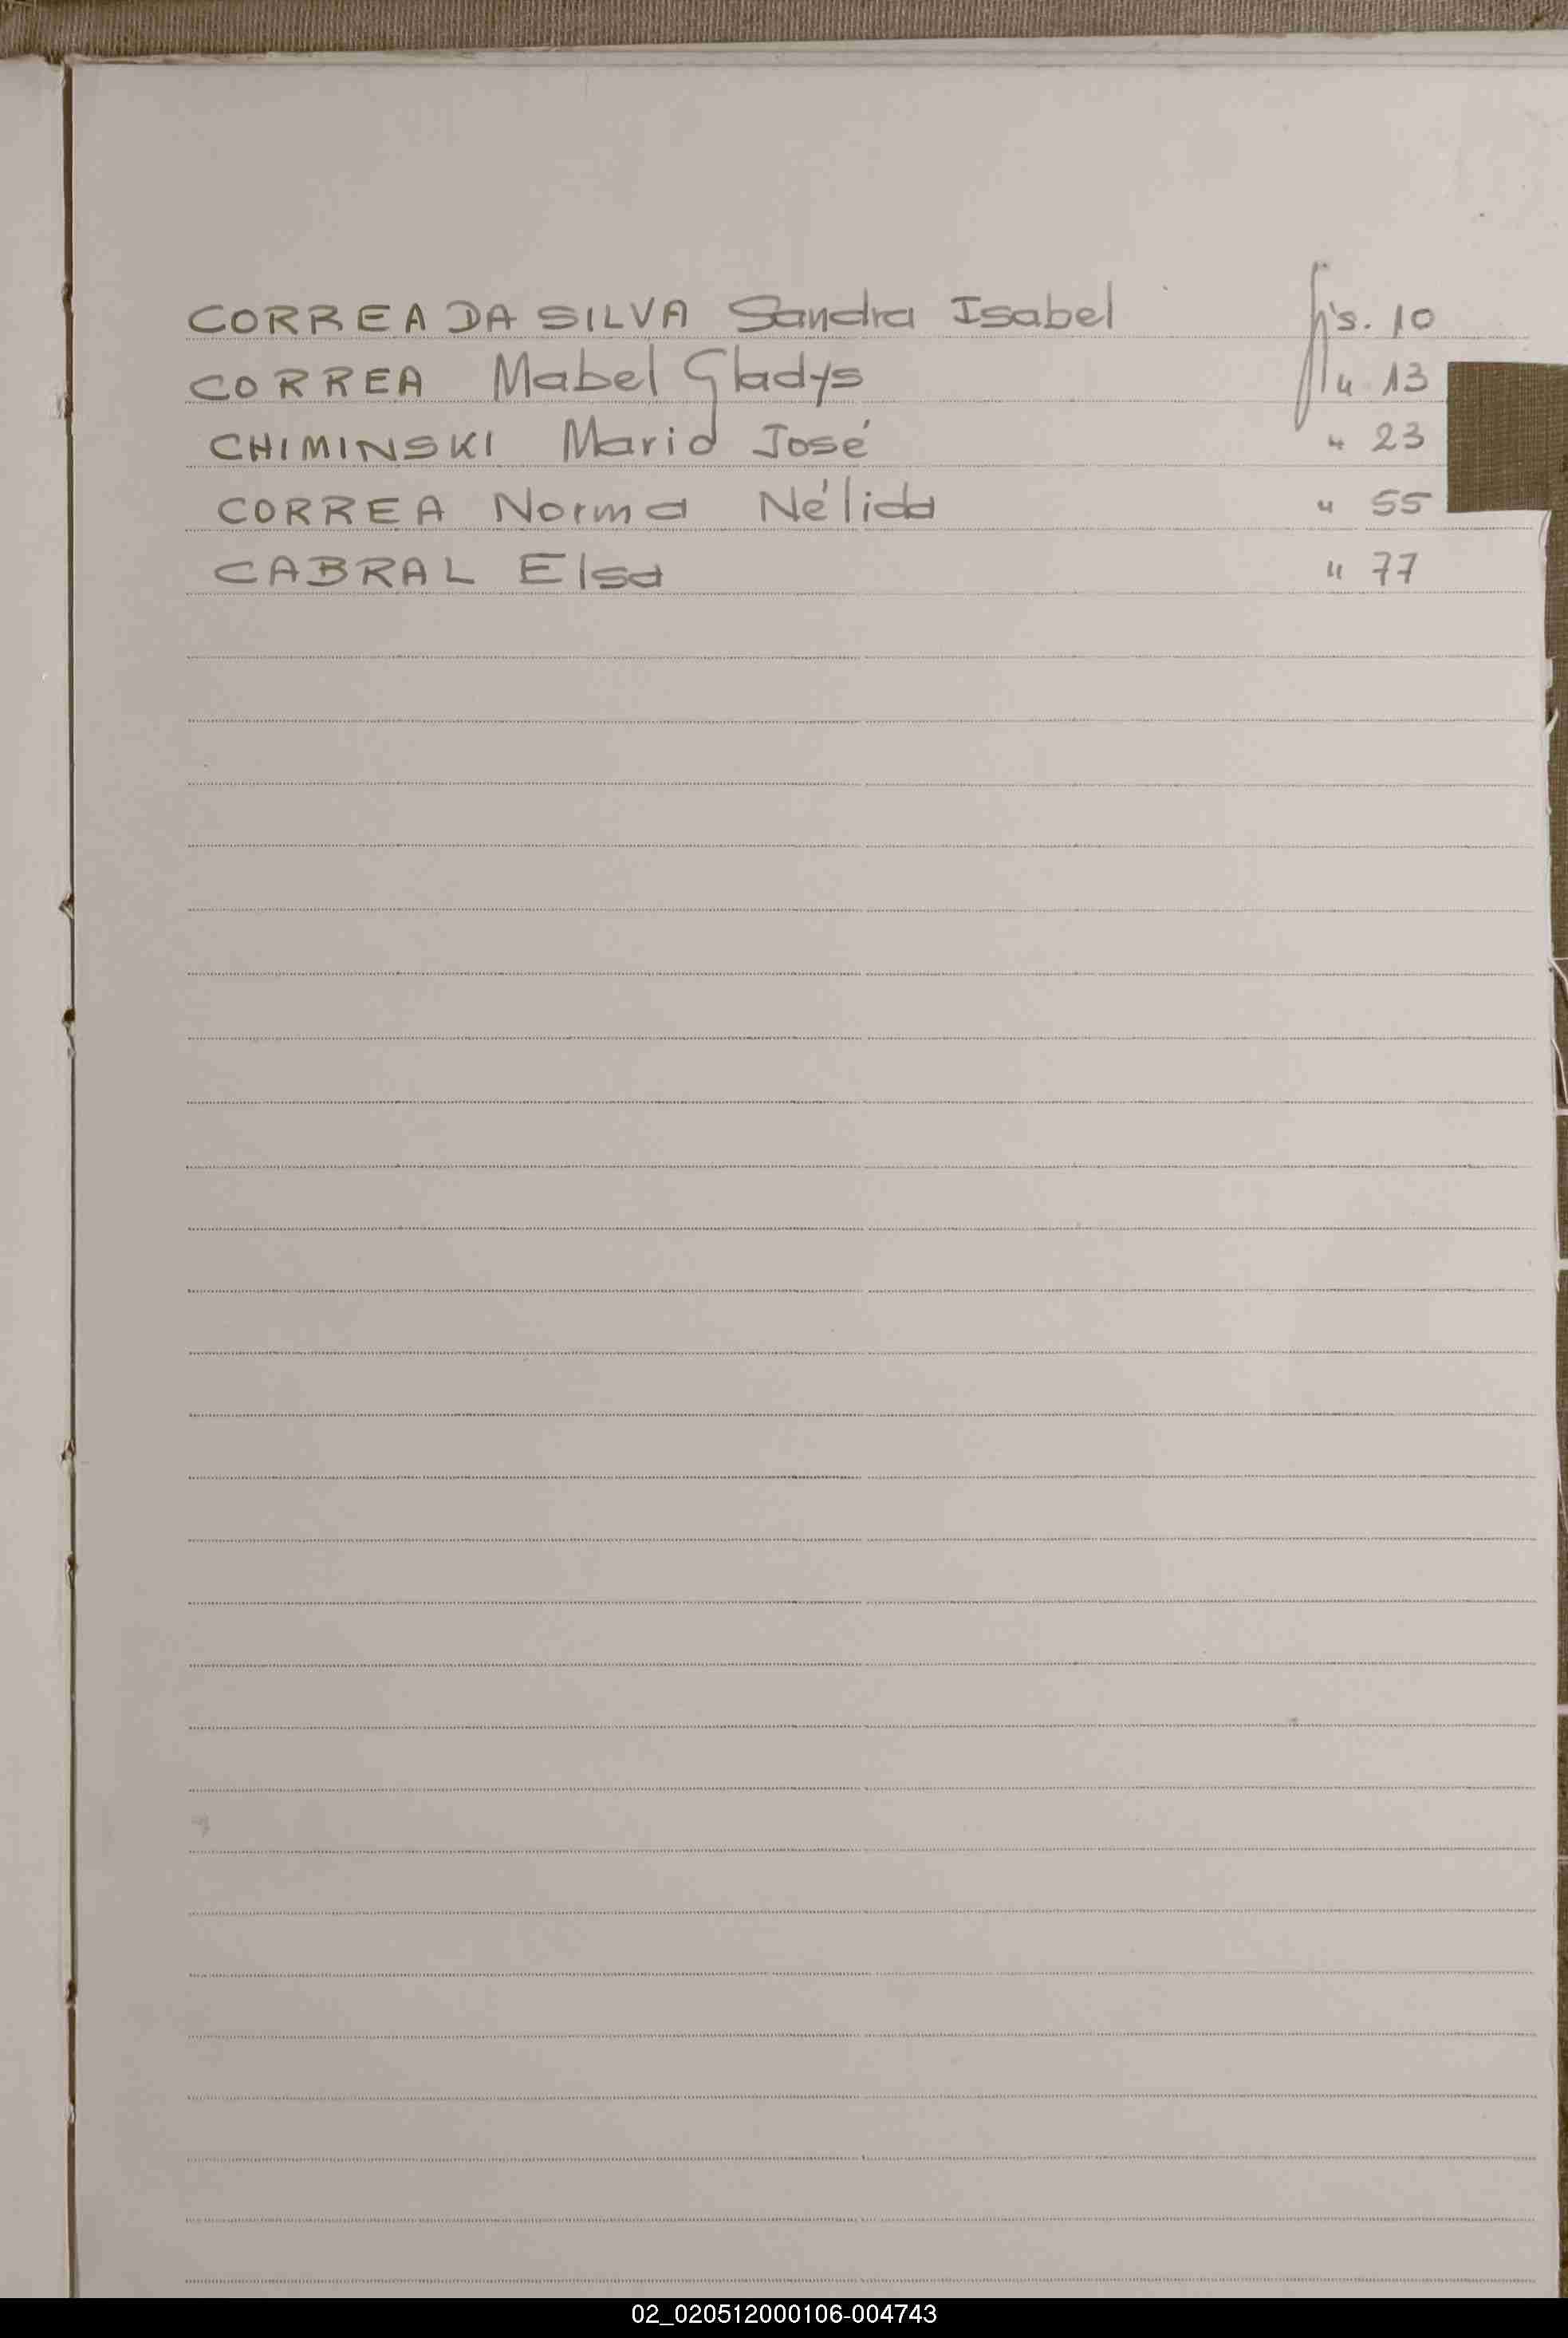 CORREA DA SILVA Sandra Isabel fjs. 10
CORREA Mabel Gladys " 13
CHIMINSKI Mario José " 23
CORREA Norma Nélida " 55
CABRAL Elsa " 77
02_020512000106-004743